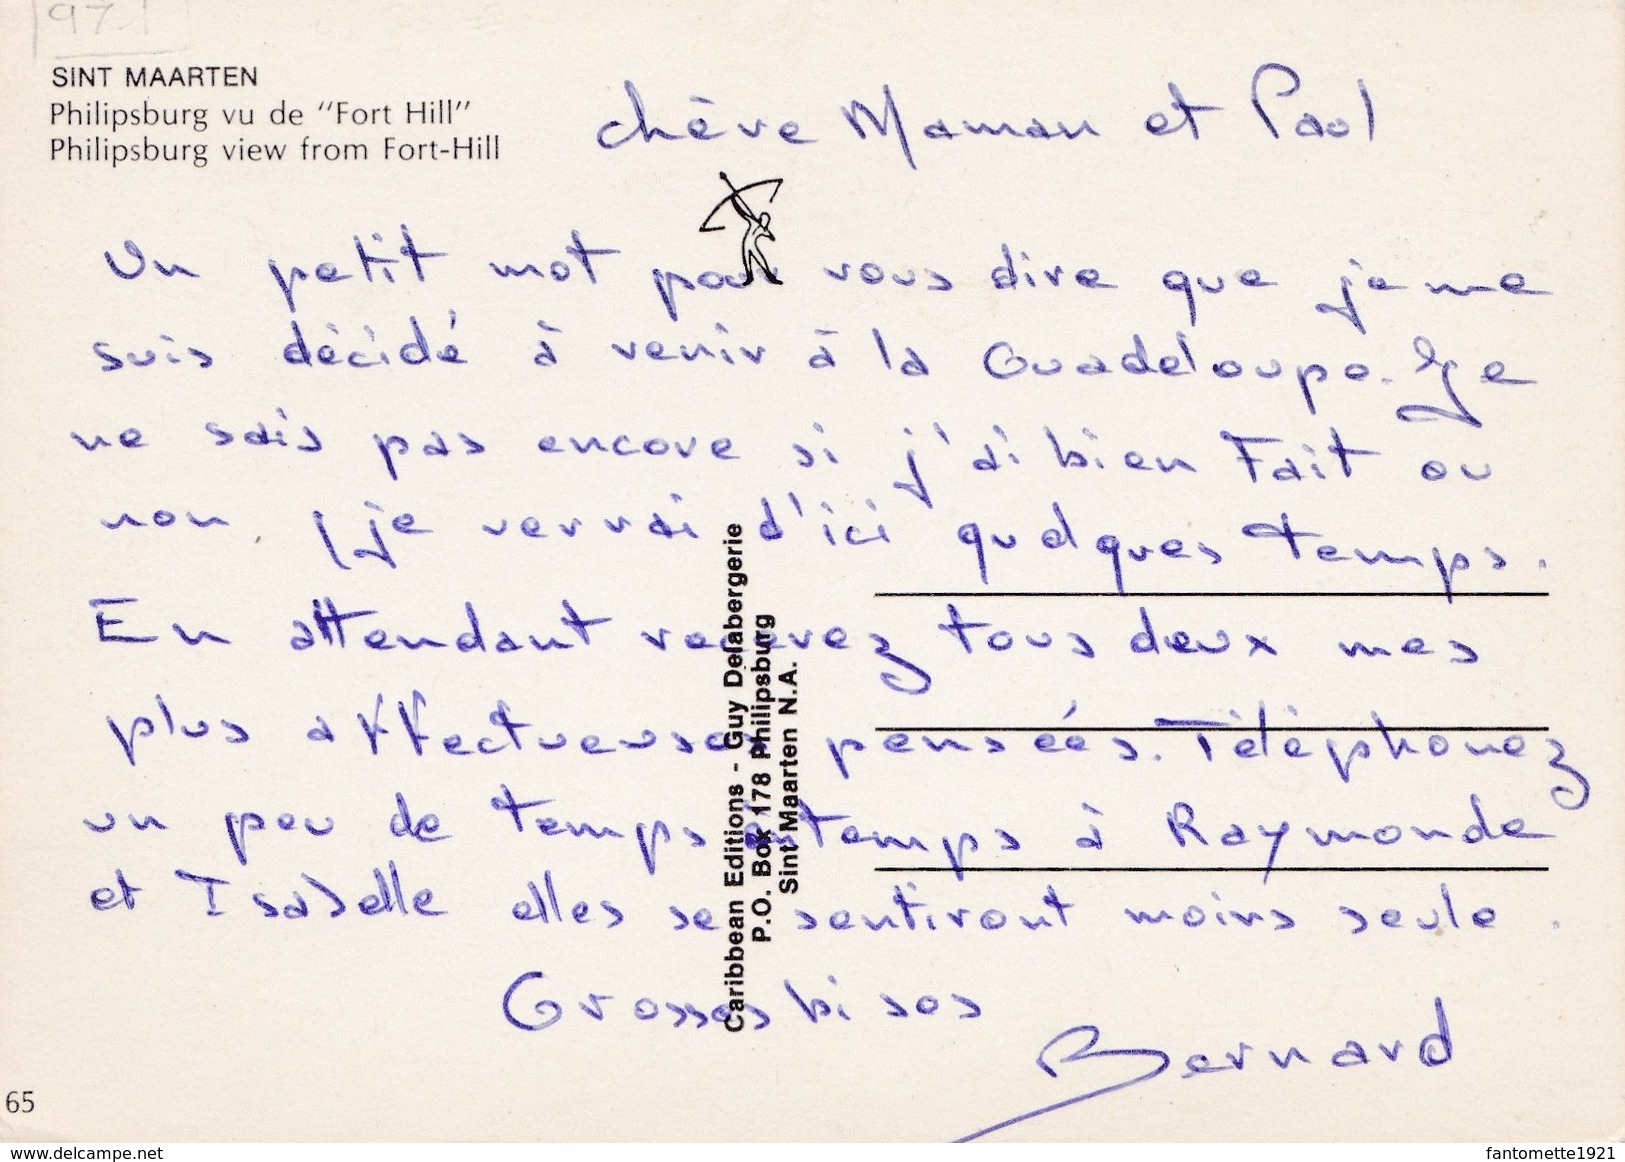 971
SINT MAARTEN
Philipsburg vu de "Fort Hill"
Philipsburg view from Fort-Hill
chère Maman et Paul
Un petit mot pour vous dire que je me
suis décidé à venir à la Guadeloupe. Je
ne sais pas encore si j'ai bien Fait ou
non, je verrai d'ici quelques temps.
En attendant recevez tous deux mes
plus affectueuses pensées. Téléphonez
un peu de temps en temps à Raymonde
et Isabelle elles se sentiront moins seule.
Grosses bises
Bernard
Caribbean Editions - Guy Delabergerie
P.O. Box 178 Philipsburg
Sint Maarten N.A.
65
www.delcampe.net
fantomette1921